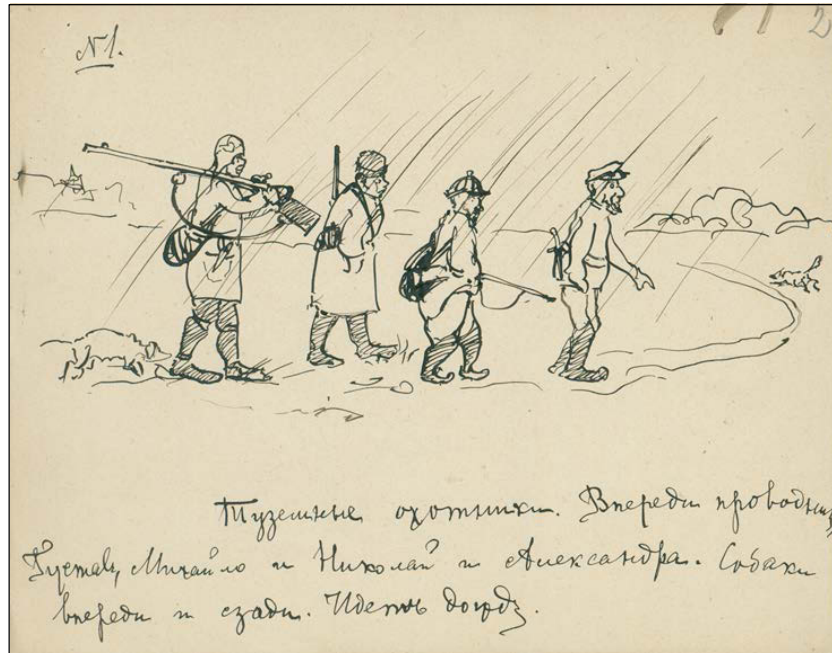 №1.
2
Туземные охотники. Впереди проводникъ
Густавъ, Михайло и Николай и Александра. Собаки
впереди и сзади. Идетъ дождь.